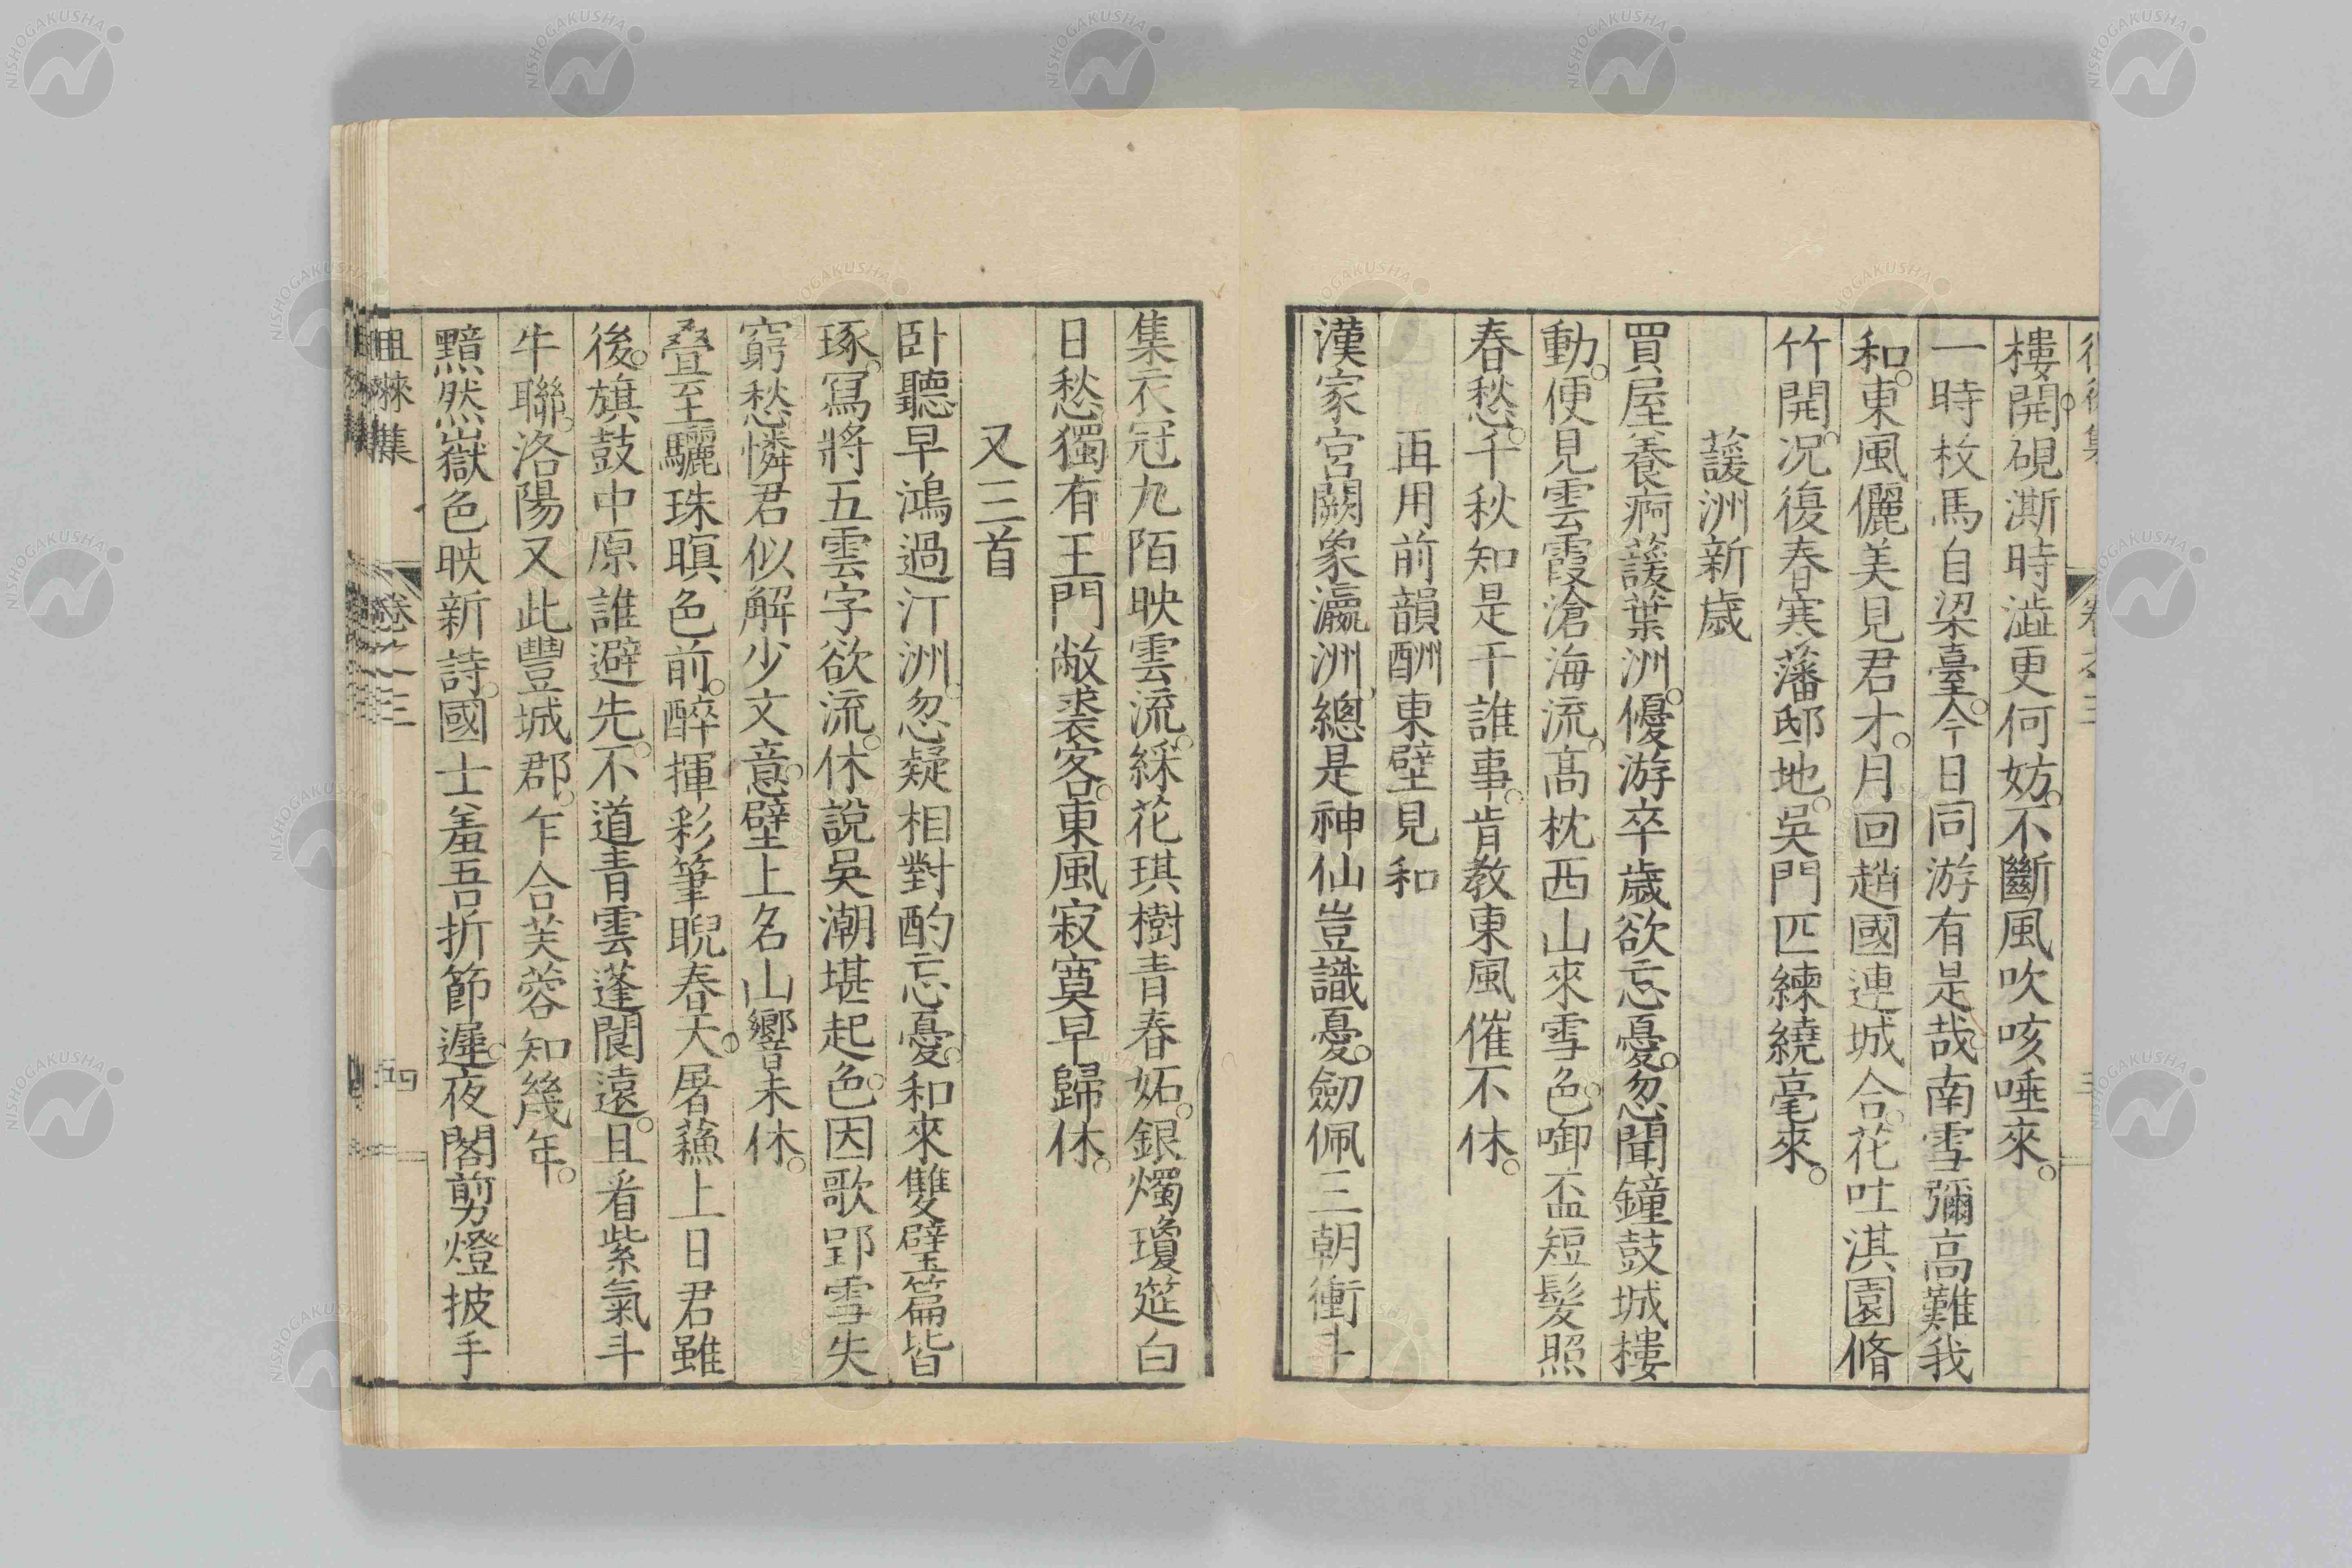 樓開硯澌時澁更何妨不斷風吹咳唾來
一時枚馬自梁臺今日同游有是哉南雪彌高難我
和東風儷美見君才月回趙國連城合花吐淇園脩
竹開况復春寒藩邸地吳門匹練繞毫來
蘐洲新歲
買屋養痾蘐葉洲優游卒歲欲忘憂忽聞鐘鼓城樓
動便見雲霞滄海流高枕西山來雪色啣盃短髮照
春愁千秋知是干誰事肯教東風催不休
再用前韻酬東壁見和
漢家宮闕象瀛洲總是神仙豈識憂劒佩三朝衝斗
集衣冠九陌映雲流綵花琪樹青春妬銀燭瓊筵白
日愁獨有王門敝裘客東風寂寞早歸休
又三首
卧聽早鴻過汀洲忽疑相對酌忘憂和來雙璧篇皆
琢寫將五雲字欲流休說吳潮堪起色因歌郢雪失
窮愁憐君似解少文意壁上名山響未休
疊至驪珠暝色前醉揮彩筆睨春天屠蘓上日君雖
後旗鼓中原誰避先不道青雲蓬閬遠且看紫氣斗
牛聯洛陽又此豐城郡乍合芙蓉知幾年
黯然嶽色映新詩國士羞吾折節遲夜閣剪燈披手
徂徠集 卷之三 四
NISHOGAKUSHA